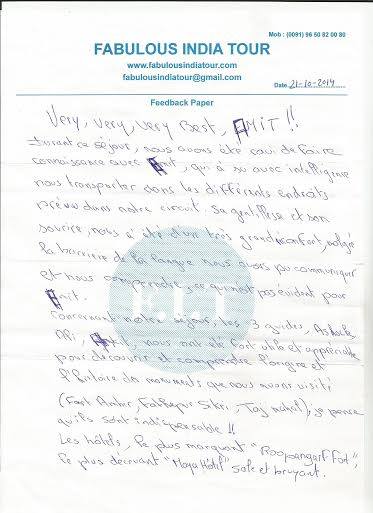 Mob : (0091) 96 50 82 00 80
FABULOUS INDIA TOUR
www.fabulousindiatour.com
fabulousindiatour@gmail.com
Date 21-10-2014
Feedback Paper
Very, very, very Best, AMIT !!
durant ce séjour, nous avons été ravi de faire
connaissance avec Amit, qui à su avec intelligence
nous transporter dans les différents endroits
prévu dans notre circuit. Sa gentillesse et son
sourire, nous a été d'un très grand confort, malgré
la barrière de la langue nous avons pu communiquer
et nous comprendre, ce qui n'est pas évident pour
Amit.
F.I.T
concernant notre séjour, les 3 guides, Ashok,
Ali, nous ont de fort utile et appréciable
pour découvrir et comprendre l'origine et
l'histoire des monuments que nous avons visité
(Fort Amber, Fatehpur Sikri, Taj mahal), je pense
qu'ils sont indispensable !!
Les hôtels, le plus marquant "Roopangarh Fort",
le plus décevant "Maya Hotel" sale et bruyant.